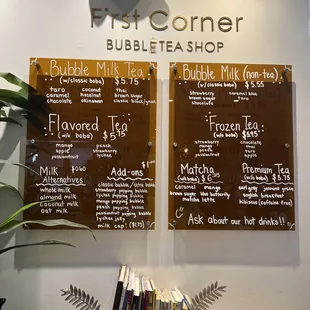 First Corner
BUBBLETEA SHOP
Bubble Milk Tea
(w/ classic boba) $5.75
taro coconut thai
caramel hazelnut brown sugar
chocolate okinawan classic black/green
Flavored Tea
(w/o boba) $5
mango peach
apple strawberry
passionfruit lychee
Milk $0.60
Alternatives:
whole milk
almond milk
coconut milk
oat milk
Add-ons: $1
classic bubble /extra
strawberry popping bubble
mango popping bubble
peach popping bubble
lychee popping bubble
passionfruit popping bubble
Bubble Milk (non-tea)
(w/ classic boba) $5.55
strawberry caramel blue
brown sugar taro
chocolate
Frozen Tea
(w/o boba)
strawberry chocolate
mango taro
passionfruit apple
Matcha
(w/ classic boba) $6
caramel mango
brown sugar strawberry
matcha latte
Premium Tea
(w/o boba) $5.75
earl grey jasmine green
english breakfast
hibiscus (caffeine free)
Ask about our hot drinks!!